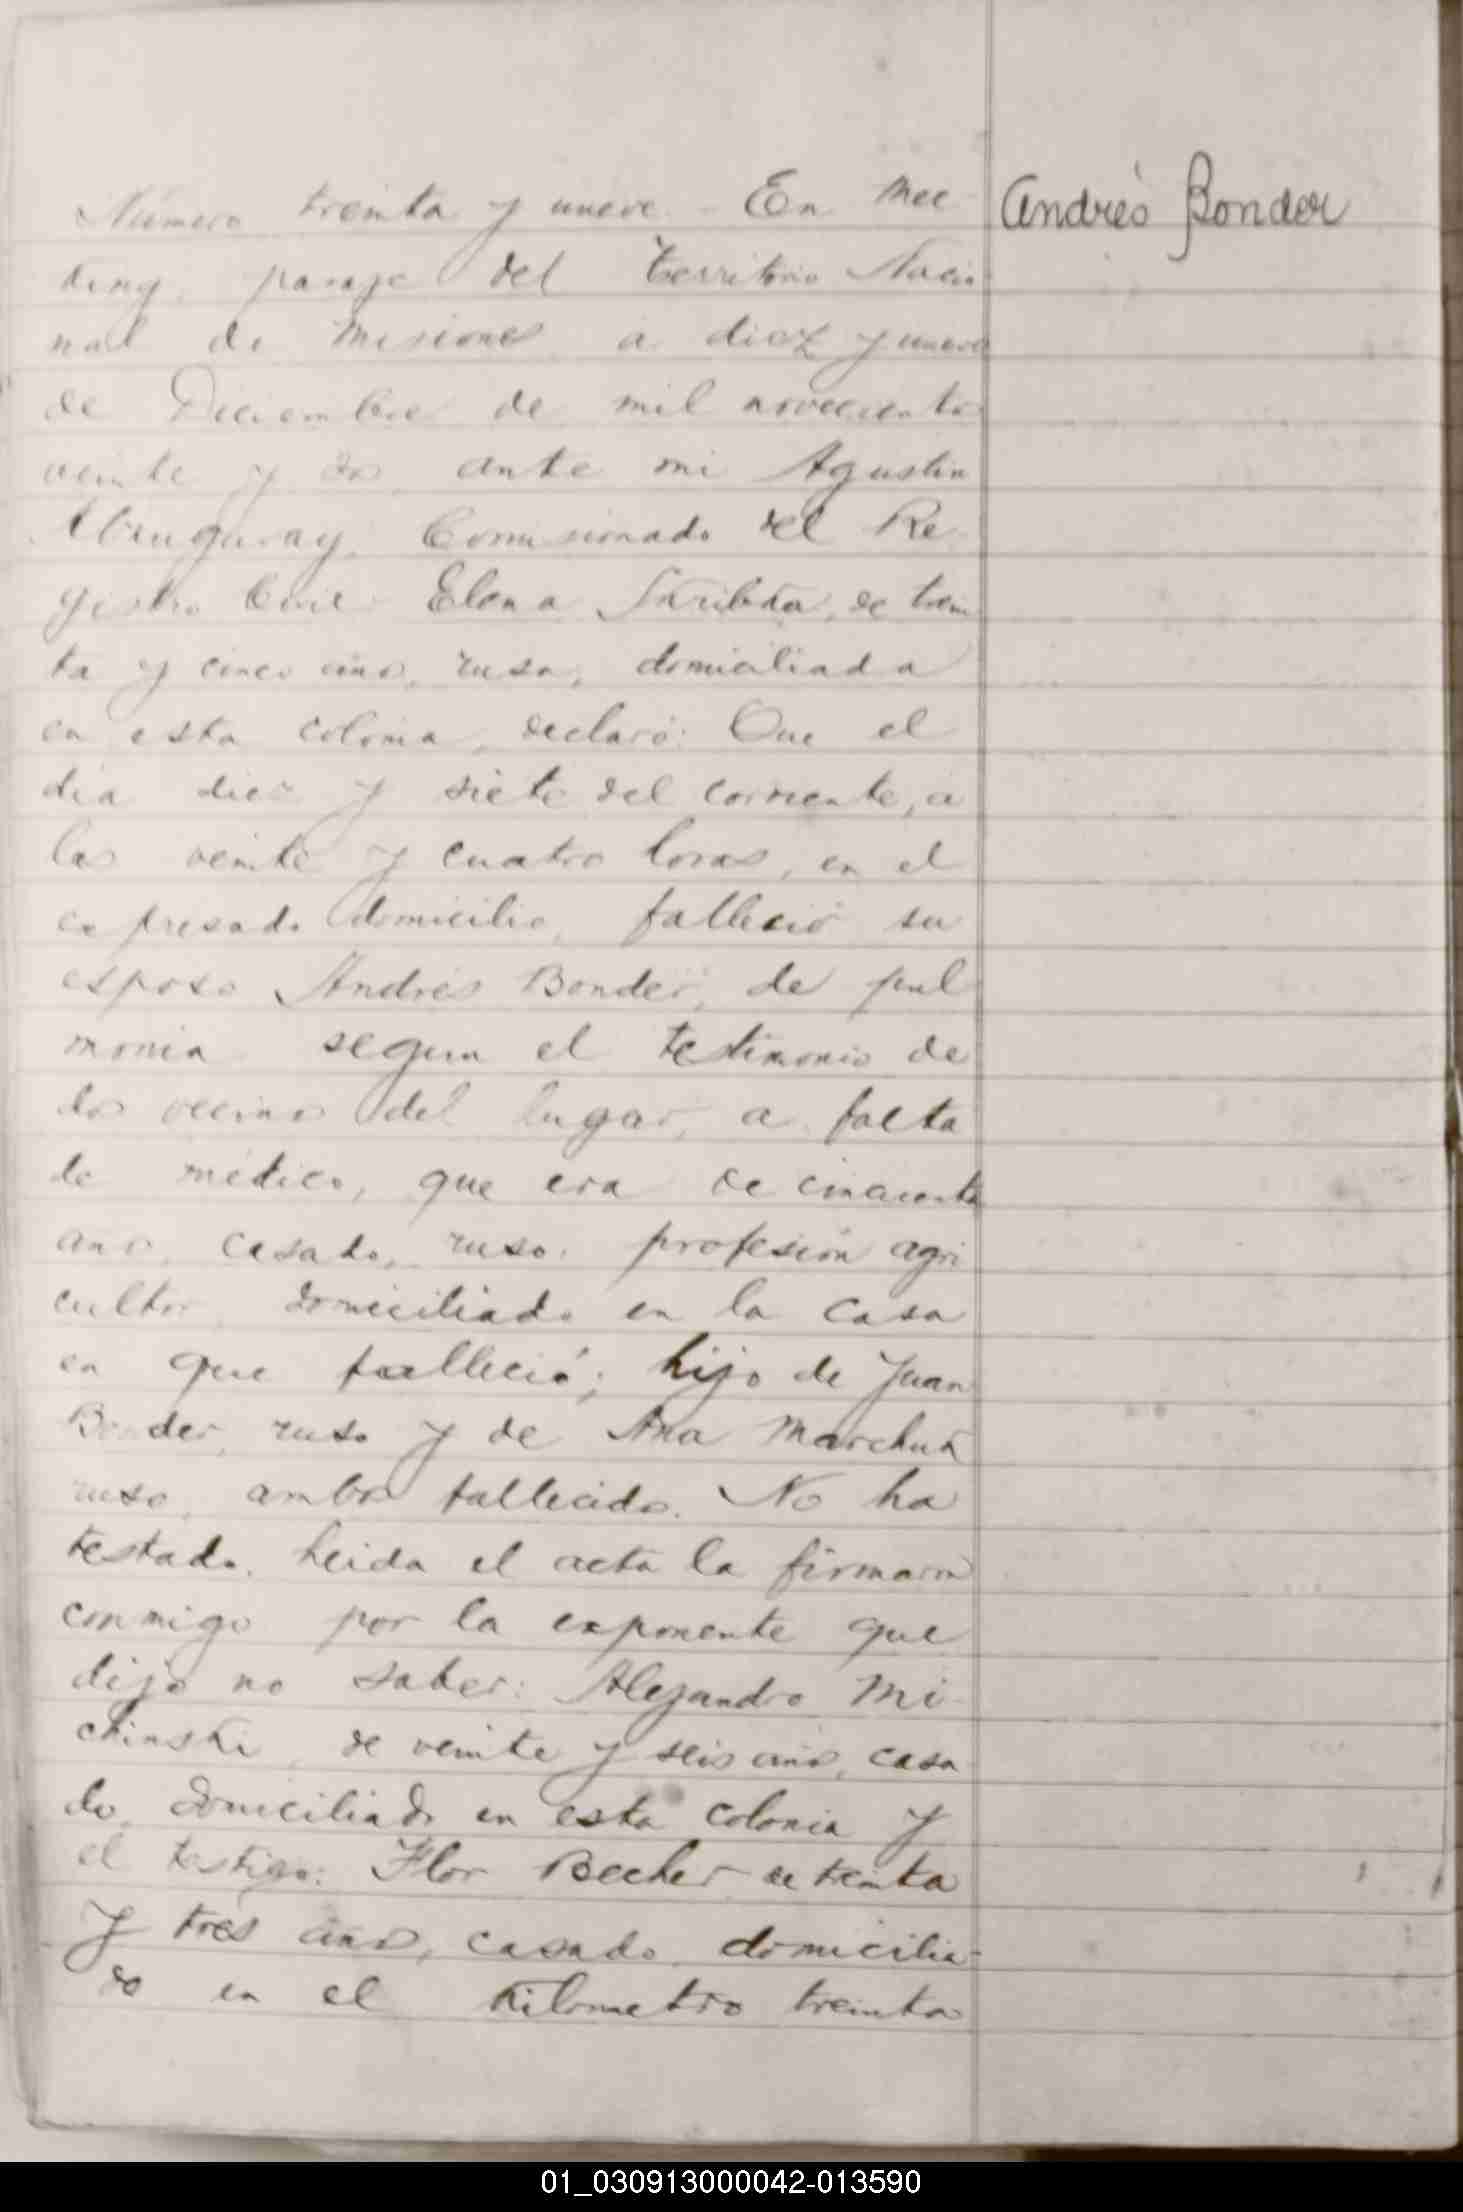 Número treinta y nueve. - En Mee
Andrés Bonder
ting, paraje del Territorio Nacio
nal de Misiones a diez y nueve
de Diciembre de mil novecientos
veinte y dos, ante mi Agustin
Comisionado del Re
gistro Civil Elena de trein
ta y cinco años, rusa, domiciliada
en esta colonia, declaró: Que el
dia diez y siete del corriente, a
las veinte y cuatro horas, en el
expresado domicilio, falleció su
esposo Andrés Bonder, de pul
monia segun el testimonio de
dos vecinos del lugar, a falta
de médico, que era de cincuenta
años, casado, ruso, profesión agri
cultor domiciliado en la casa
en que falleció; hijo de Juan
Bonder, ruso y de Ana
ruso, ambos fallecidos. No ha
testado. Leida el acta la firmaron
conmigo por la exponente que
dijo no saber: Alejandro Mi
chinski, de veinte y seis años, casa
do, domiciliado en esta colonia y
el testigo: Flor Becker de treinta
y tres años, casado, domicilia-
do en el Kilometro treinta
01_030913000042-013590